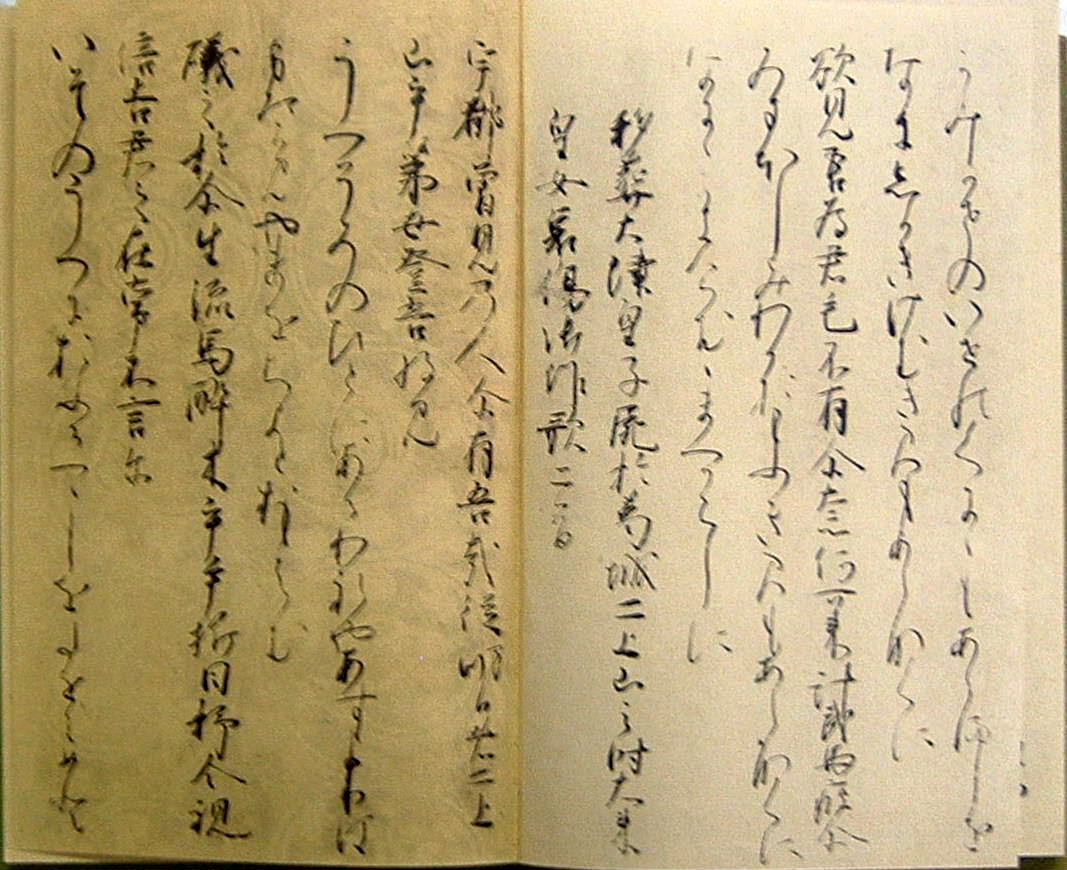 かせのいせのくにゝもあらましを
なにしかきけむきみもあらなくに
欲見吾為君毛不有尓奈何可来計武馬疲尓
みまほしみわかおもふきみもあらなくに
なにゝかきけむうまつからしに
移葬大津皇子屍於葛城二上山之時大来
皇女哀傷御作歌二首
宇都曽見乃人尓有吾哉従明日者二上
山乎弟世登吾将見
うつそみのひとにあるわれやあすよりは
やまを
礒之於尓生流馬酔木乎手折目杼令視
倍吉君之在常不言尓
いそのうへにおふるつゝしをたをらめと